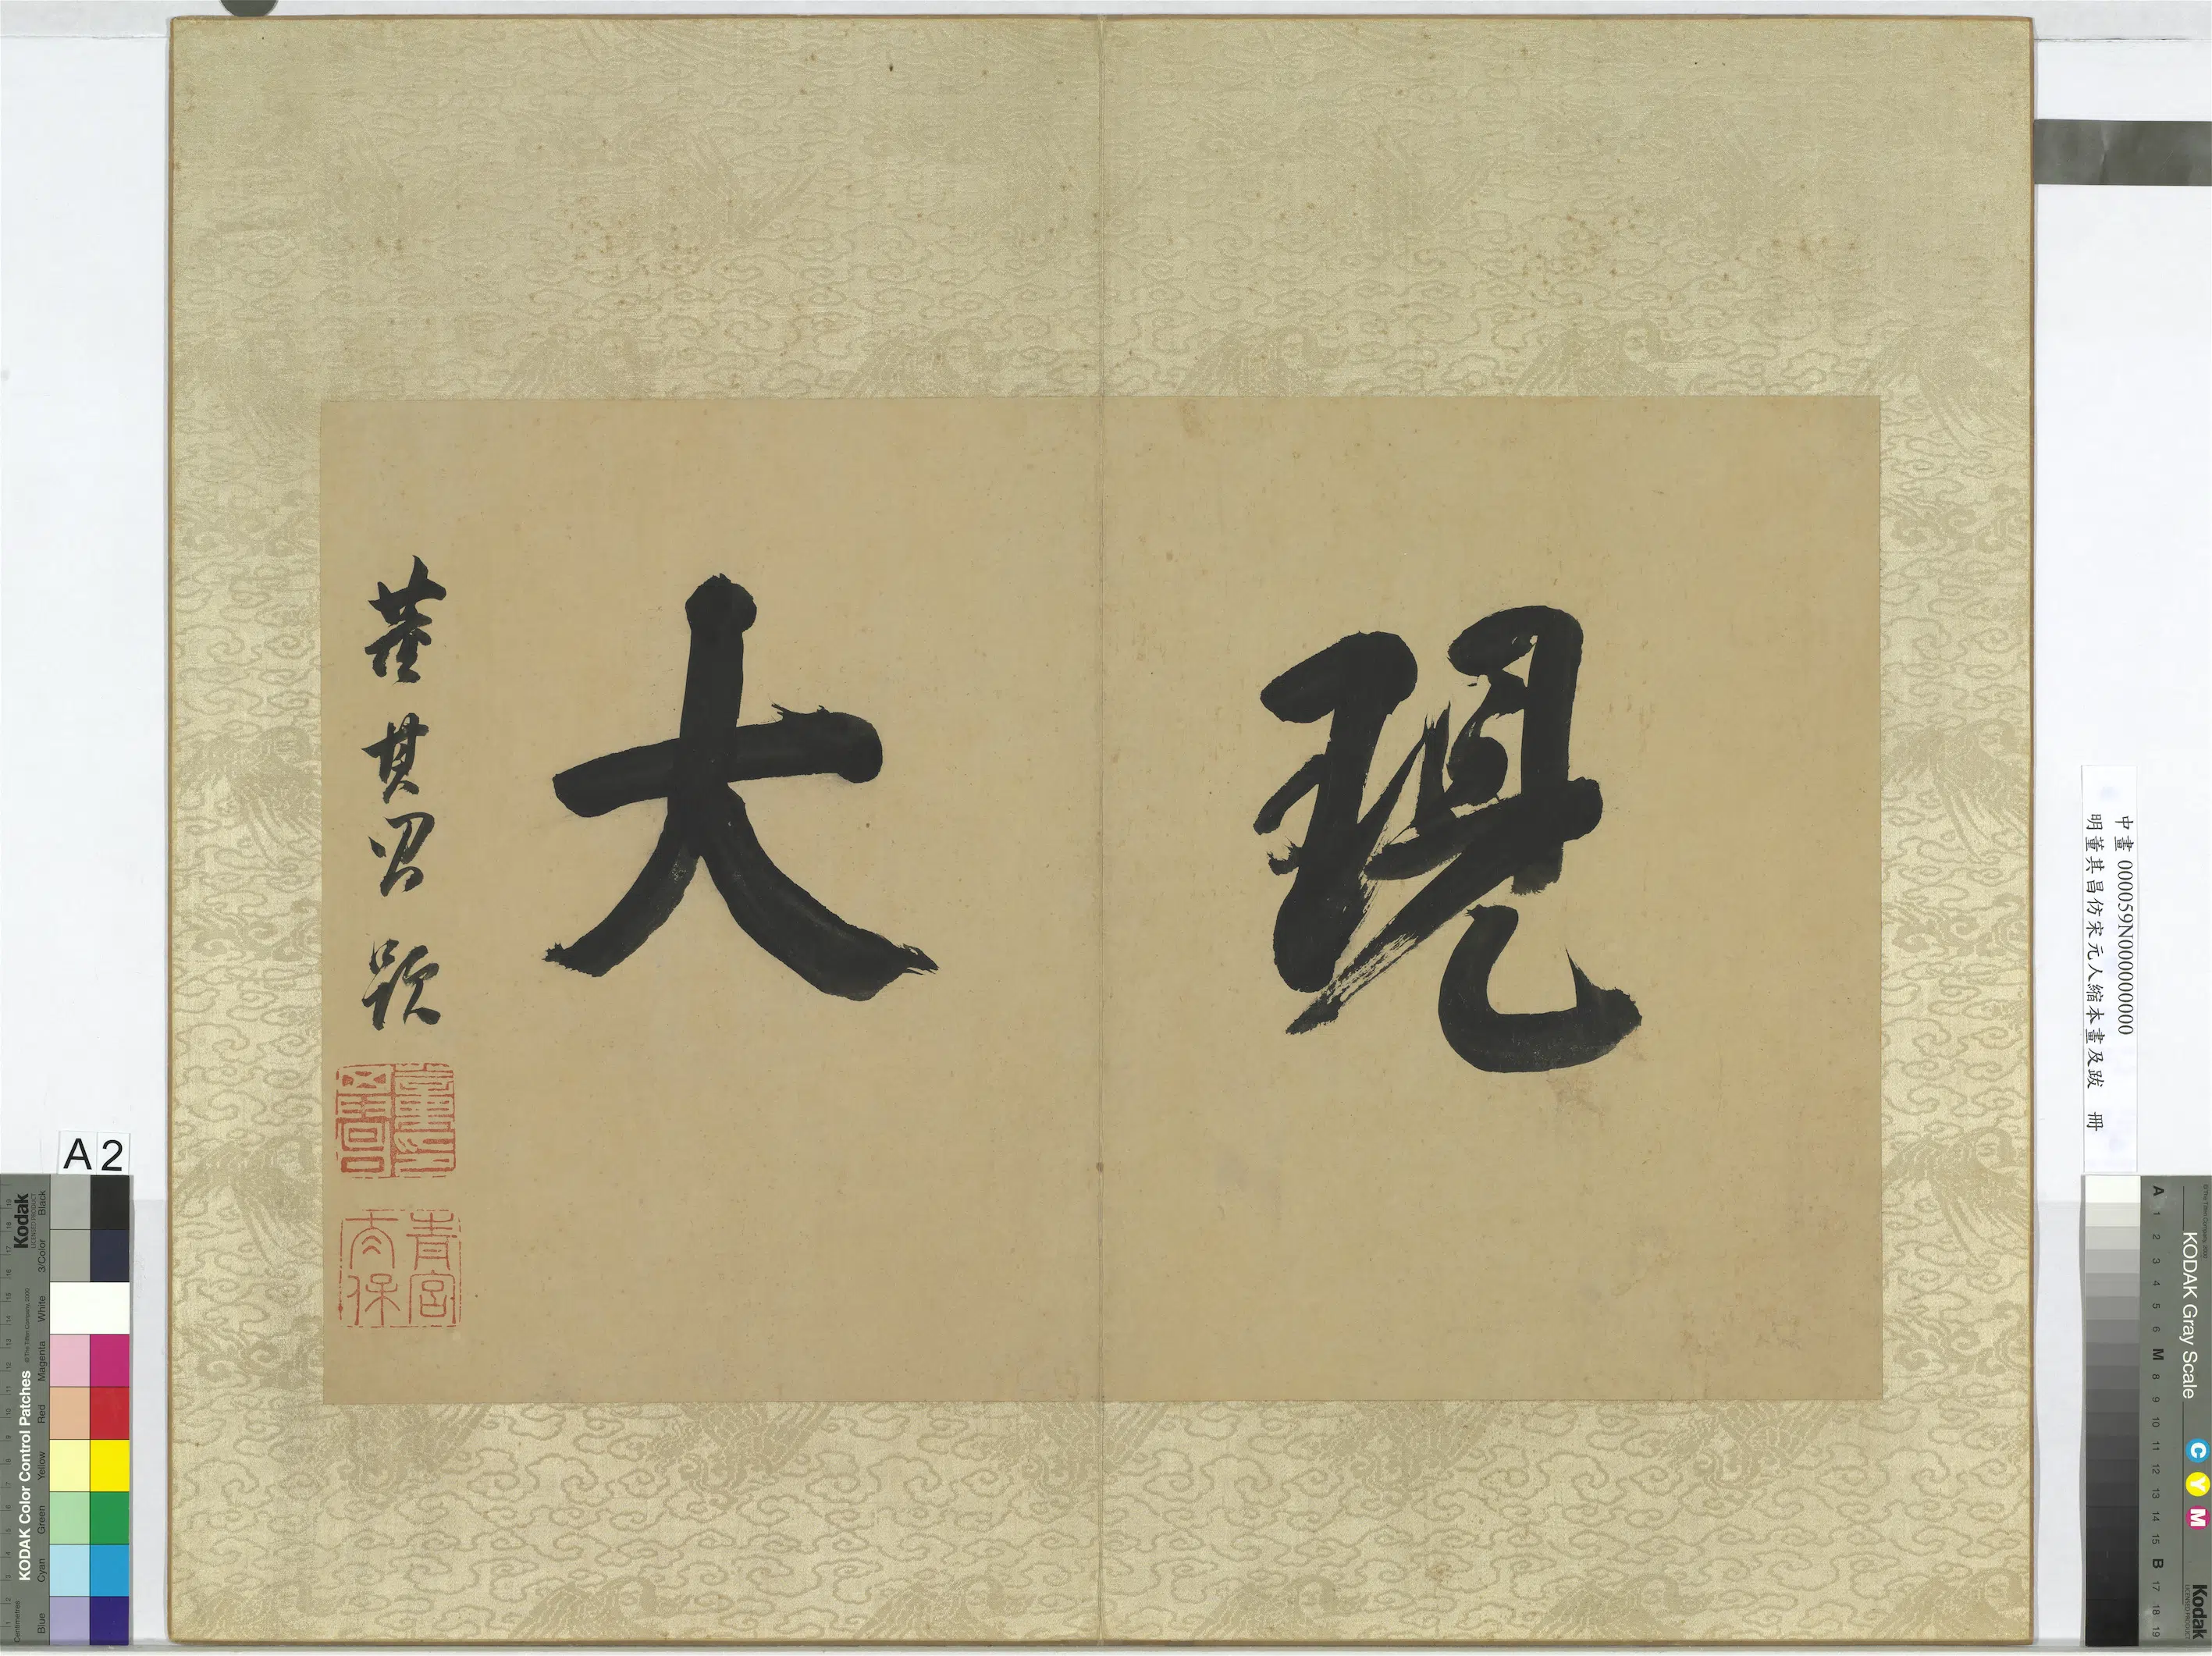 現
大
董其昌題
董其昌
青宮太保
中畫 000059N000000000
明董其昌仿宋元人縮本畫及跋 冊
A2
KODAK Color Control Patches
Kodak
LICENSED PRODUCT
©The Tiffen Company, 2000
Centimetres
Blue Cyan Green Yellow Red Magenta White 3/Color Black
KODAK Gray Scale
C Y M
Kodak
LICENSED PRODUCT
©The Tiffen Company, 2000
A 1 2 3 4 5 6 M 8 9 10 11 12 13 14 15 B 17 18 19